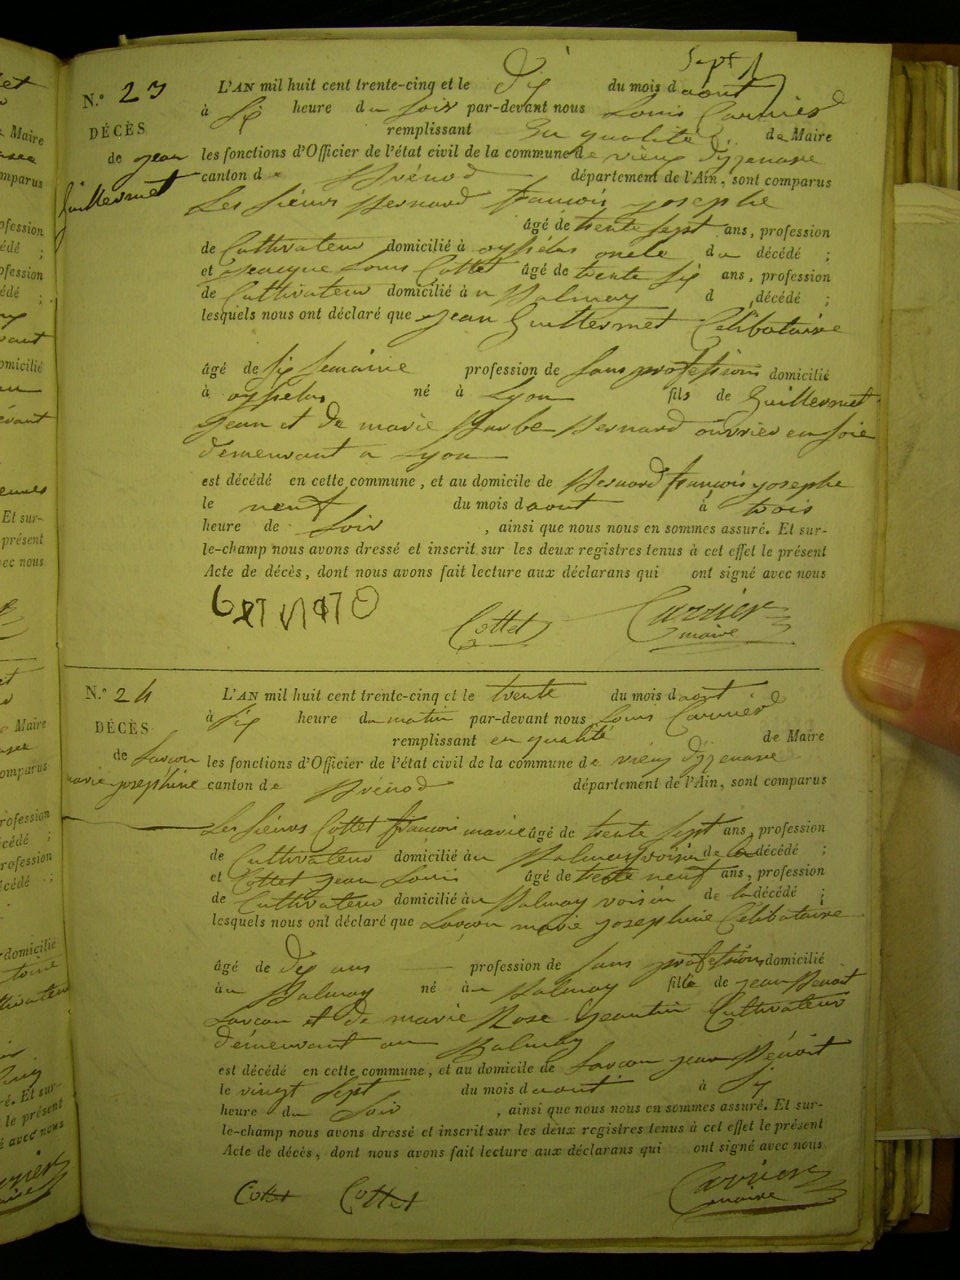 Sept
N.º 23 L'AN mil huit cent trente-cinq et le Dix du mois d'aout
à Six heure du Soir par-devant nous Louis Carrier
DÉCÈS remplissant En qualité de Maire
de jean les fonctions d'Officier de l'état civil de la commune de vieux d'izenave
Guillermet canton de Brénod département de l'Ain, sont comparus
Les Sieurs Bernard françois josephe
âgé de trente sept ans, profession
de Cultivateur domicilié à oncle du décédé ;
et jacque Louis Cottet âgé de trente six ans, profession
de Cultivateur domicilié à u Balmay d décédé ;
lesquels nous ont déclaré que jean Guillermet Célibataire
âgé de Six Semaine profession de Sans profession domicilié
à né à Lyon fils de Guillermet
jean et de marie Barbe Bernard ouvrier en Soie
demeurant a Lyon
est décédé en cette commune, et au domicile de Bernard françois josephe
le neuf du mois d'aout à trois
heure de Soir , ainsi que nous nous en sommes assuré. Et sur-
le-champ nous avons dressé et inscrit sur les deux registres tenus à cet effet le présent
Acte de décès, dont nous avons fait lecture aux déclarans qui ont signé avec nous
Cottet Carrier
maire
N.º 24 L'AN mil huit cent trente-cinq et le trente du mois d'aout
à Six heure du matin par-devant nous Louis Carrier
DÉCÈS remplissant en qualité de Maire
de Savcon les fonctions d'Officier de l'état civil de la commune de vieux d'izenave
marie josephine canton de Brénod département de l'Ain, sont comparus
Les Sieurs Cottet françois marie âgé de trente sept ans, profession
de Cultivateur domicilié au Balmay voisin de la décédé ;
et Cottet jean Louis âgé de trente neuf ans, profession
de Cultivateur domicilié au Balmay voisin de la décédé ;
lesquels nous ont déclaré que marie josephine Célibataire
âgé de Dix ans profession de Sans profession domicilié
au Balmay né au Balmay fille de jean Benoit
et de marie Rose Cultivateur
demeurant au Balmay
est décédé en cette commune, et au domicile de jean Bénoit
le vingt Sept du mois d'aout à Six
heure du Soir , ainsi que nous nous en sommes assuré. Et sur-
le-champ nous avons dressé et inscrit sur les deux registres tenus à cet effet le présent
Acte de décès, dont nous avons fait lecture aux déclarans qui ont signé avec nous
Cottet Cottet Carrier
maire